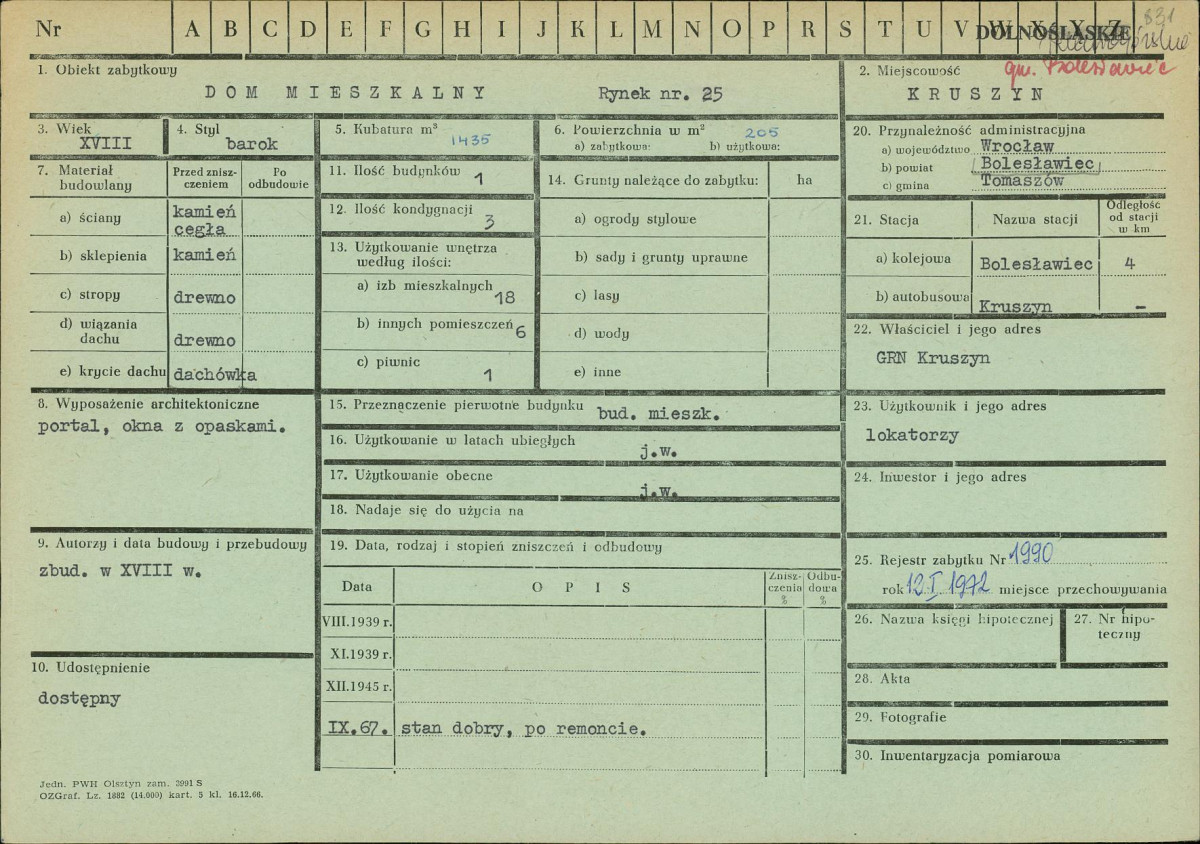 Nr A B C D E F G H I J K L M N O P R S T U V W X Y Z
DOLNOŚLĄSKIE
831
gm. Bolesławiec
1. Obiekt zabytkowy
DOM MIESZKALNY Rynek nr. 25
2. Miejscowość
KRUSZYN
3. Wiek
XVIII
4. Styl
barok
5. Kubatura m³
1435
6. Powierzchnia w m² 205
a) zabytkowa: b) użytkowa:
7. Materiał budowlany
Przed zniszczeniem
Po odbudowie
a) ściany kamień cegła
b) sklepienia kamień
c) stropy drewno
d) wiązania dachu drewno
e) krycie dachu dachówka
8. Wyposażenie architektoniczne
portal, okna z opaskami.
9. Autorzy i data budowy i przebudowy
zbud. w XVIII w.
10. Udostępnienie
dostępny
11. Ilość budynków 1
12. Ilość kondygnacji 3
13. Użytkowanie wnętrza według ilości:
a) izb mieszkalnych 18
b) innych pomieszczeń 6
c) piwnic 1
14. Grunty należące do zabytku: ha
a) ogrody stylowe
b) sady i grunty uprawne
c) lasy
d) wody
e) inne
15. Przeznaczenie pierwotne budynku bud. mieszk.
16. Użytkowanie w latach ubiegłych j.w.
17. Użytkowanie obecne j.w.
18. Nadaje się do użycia na
19. Data, rodzaj i stopień zniszczeń i odbudowy
Data OPIS Zniszczenia % Odbudowa %
VIII.1939 r.
XI.1939 r.
XII.1945 r.
IX.67. stan dobry, po remoncie.
20. Przynależność administracyjna
a) województwo Wrocław
b) powiat Bolesławiec
c) gmina Tomaszów
21. Stacja Nazwa stacji Odległość od stacji w km
a) kolejowa Bolesławiec 4
b) autobusowa Kruszyn -
22. Właściciel i jego adres
GRN Kruszyn
23. Użytkownik i jego adres
lokatorzy
24. Inwestor i jego adres
25. Rejestr zabytku Nr 1990
rok 12.I.1972 miejsce przechowywania
26. Nazwa księgi hipotecznej
27. Nr hipoteczny
28. Akta
29. Fotografie
30. Inwentaryzacja pomiarowa
Jedn. PWH Olsztyn zam. 3991 S
OZGraf. Lz. 1882 (14.000) kart. 5 kl. 16.12.66.